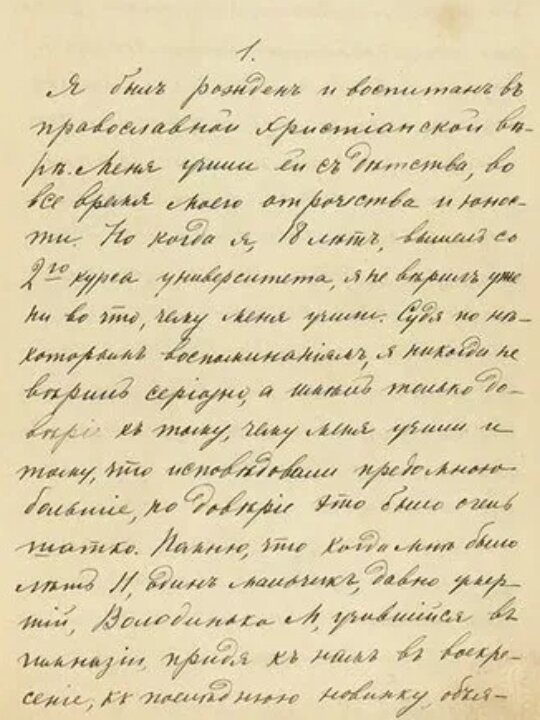 1.
Я былъ рожденъ и воспитанъ въ
православной христіанской вѣ-
рѣ. Меня учили ей съ дѣтства, во
все время моего отрочества и юнос-
ти. Но когда я, 18 лѣтъ, вышелъ со
2го курса университета, я не вѣрилъ уже
ни во что, чему меня учили. Судя по нѣ-
которымъ воспоминаніямъ, я никогда не
вѣрилъ серіозно, а имѣлъ только до-
вѣріе къ тому, чему меня учили и
тому, что исповѣдовали предо мною
большіе, но довѣріе это было очень
шатко. Помню, что когда мнѣ было
лѣтъ 11, одинъ мальчикъ, давно умер-
шій, Володинька М, учившійся въ
гимназіи, придя къ намъ въ воскре-
сеніе, какъ послѣднюю новинку, объя-